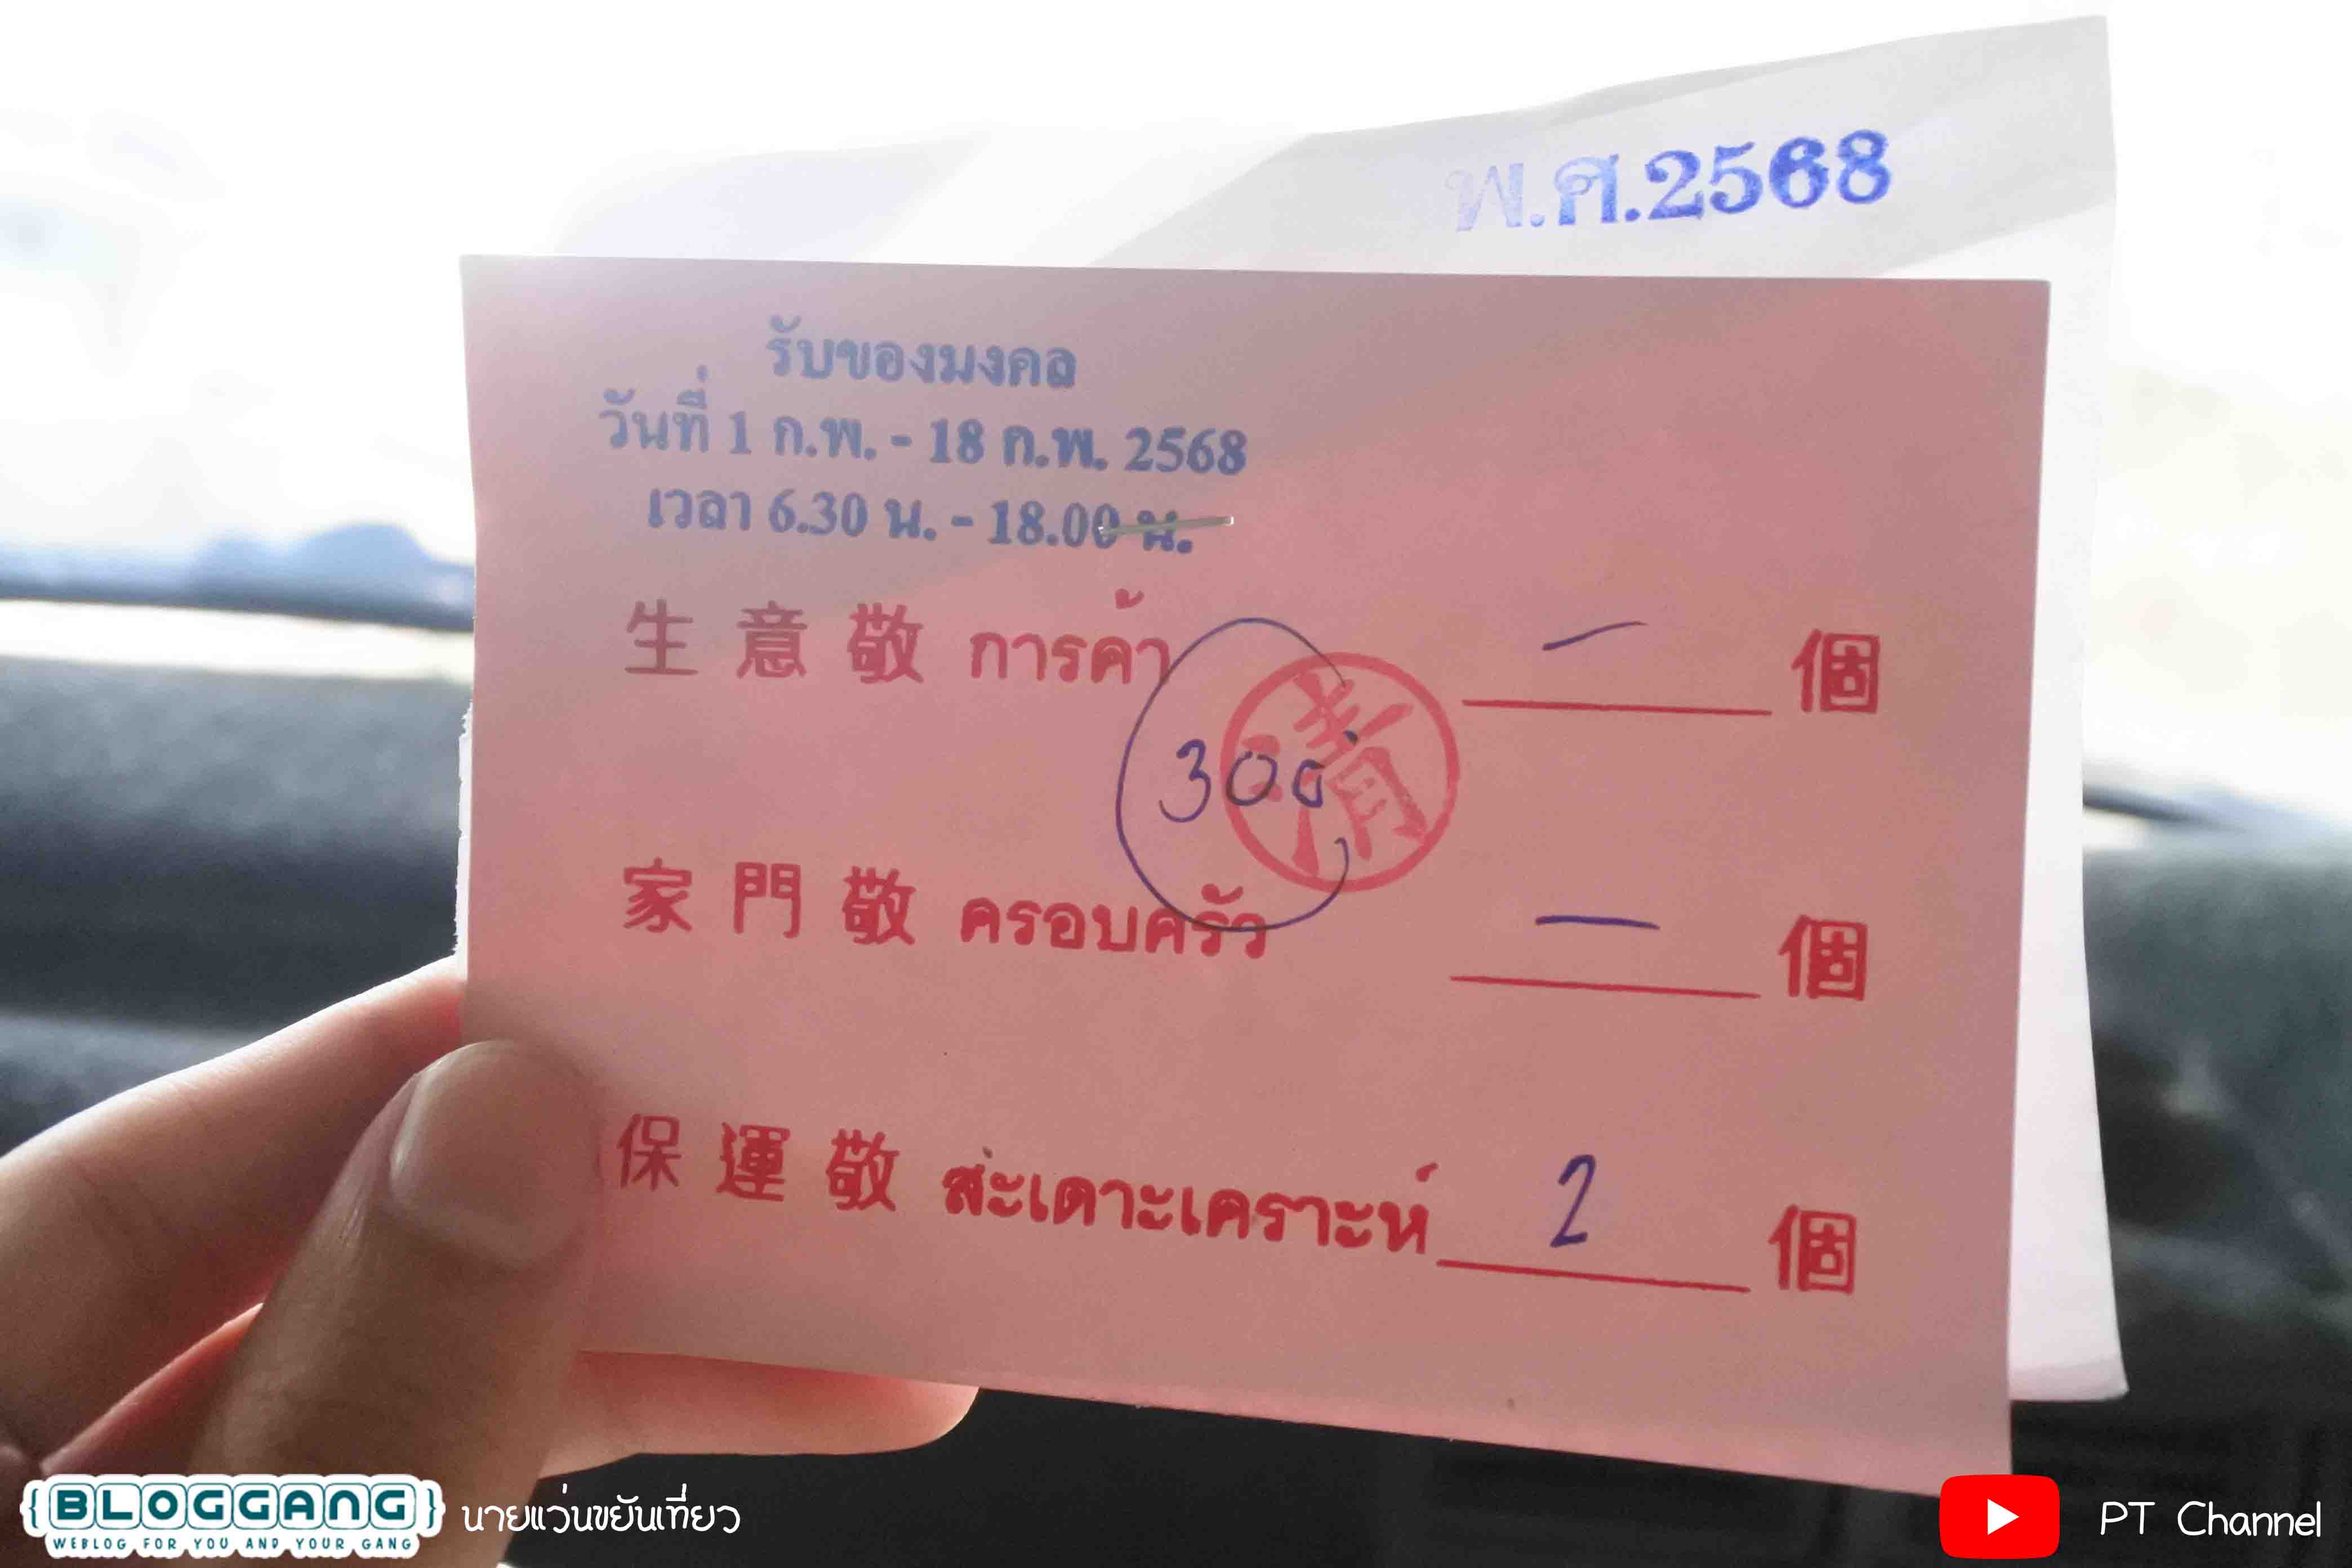 พ.ศ.2568
รับของมงคล
วันที่ 1 ก.พ. - 18 ก.พ. 2568
เวลา 6.30 น. - 18.00 น.
生 意 敬 การค้า — 個
300
清
家 門 敬 ครอบครัว — 個
保 運 敬 สะเดาะเคราะห์ 2 個
{BLOGGANG} นายแว่นขยันเที่ยว
WEBLOG FOR YOU AND YOUR GANG
PT Channel